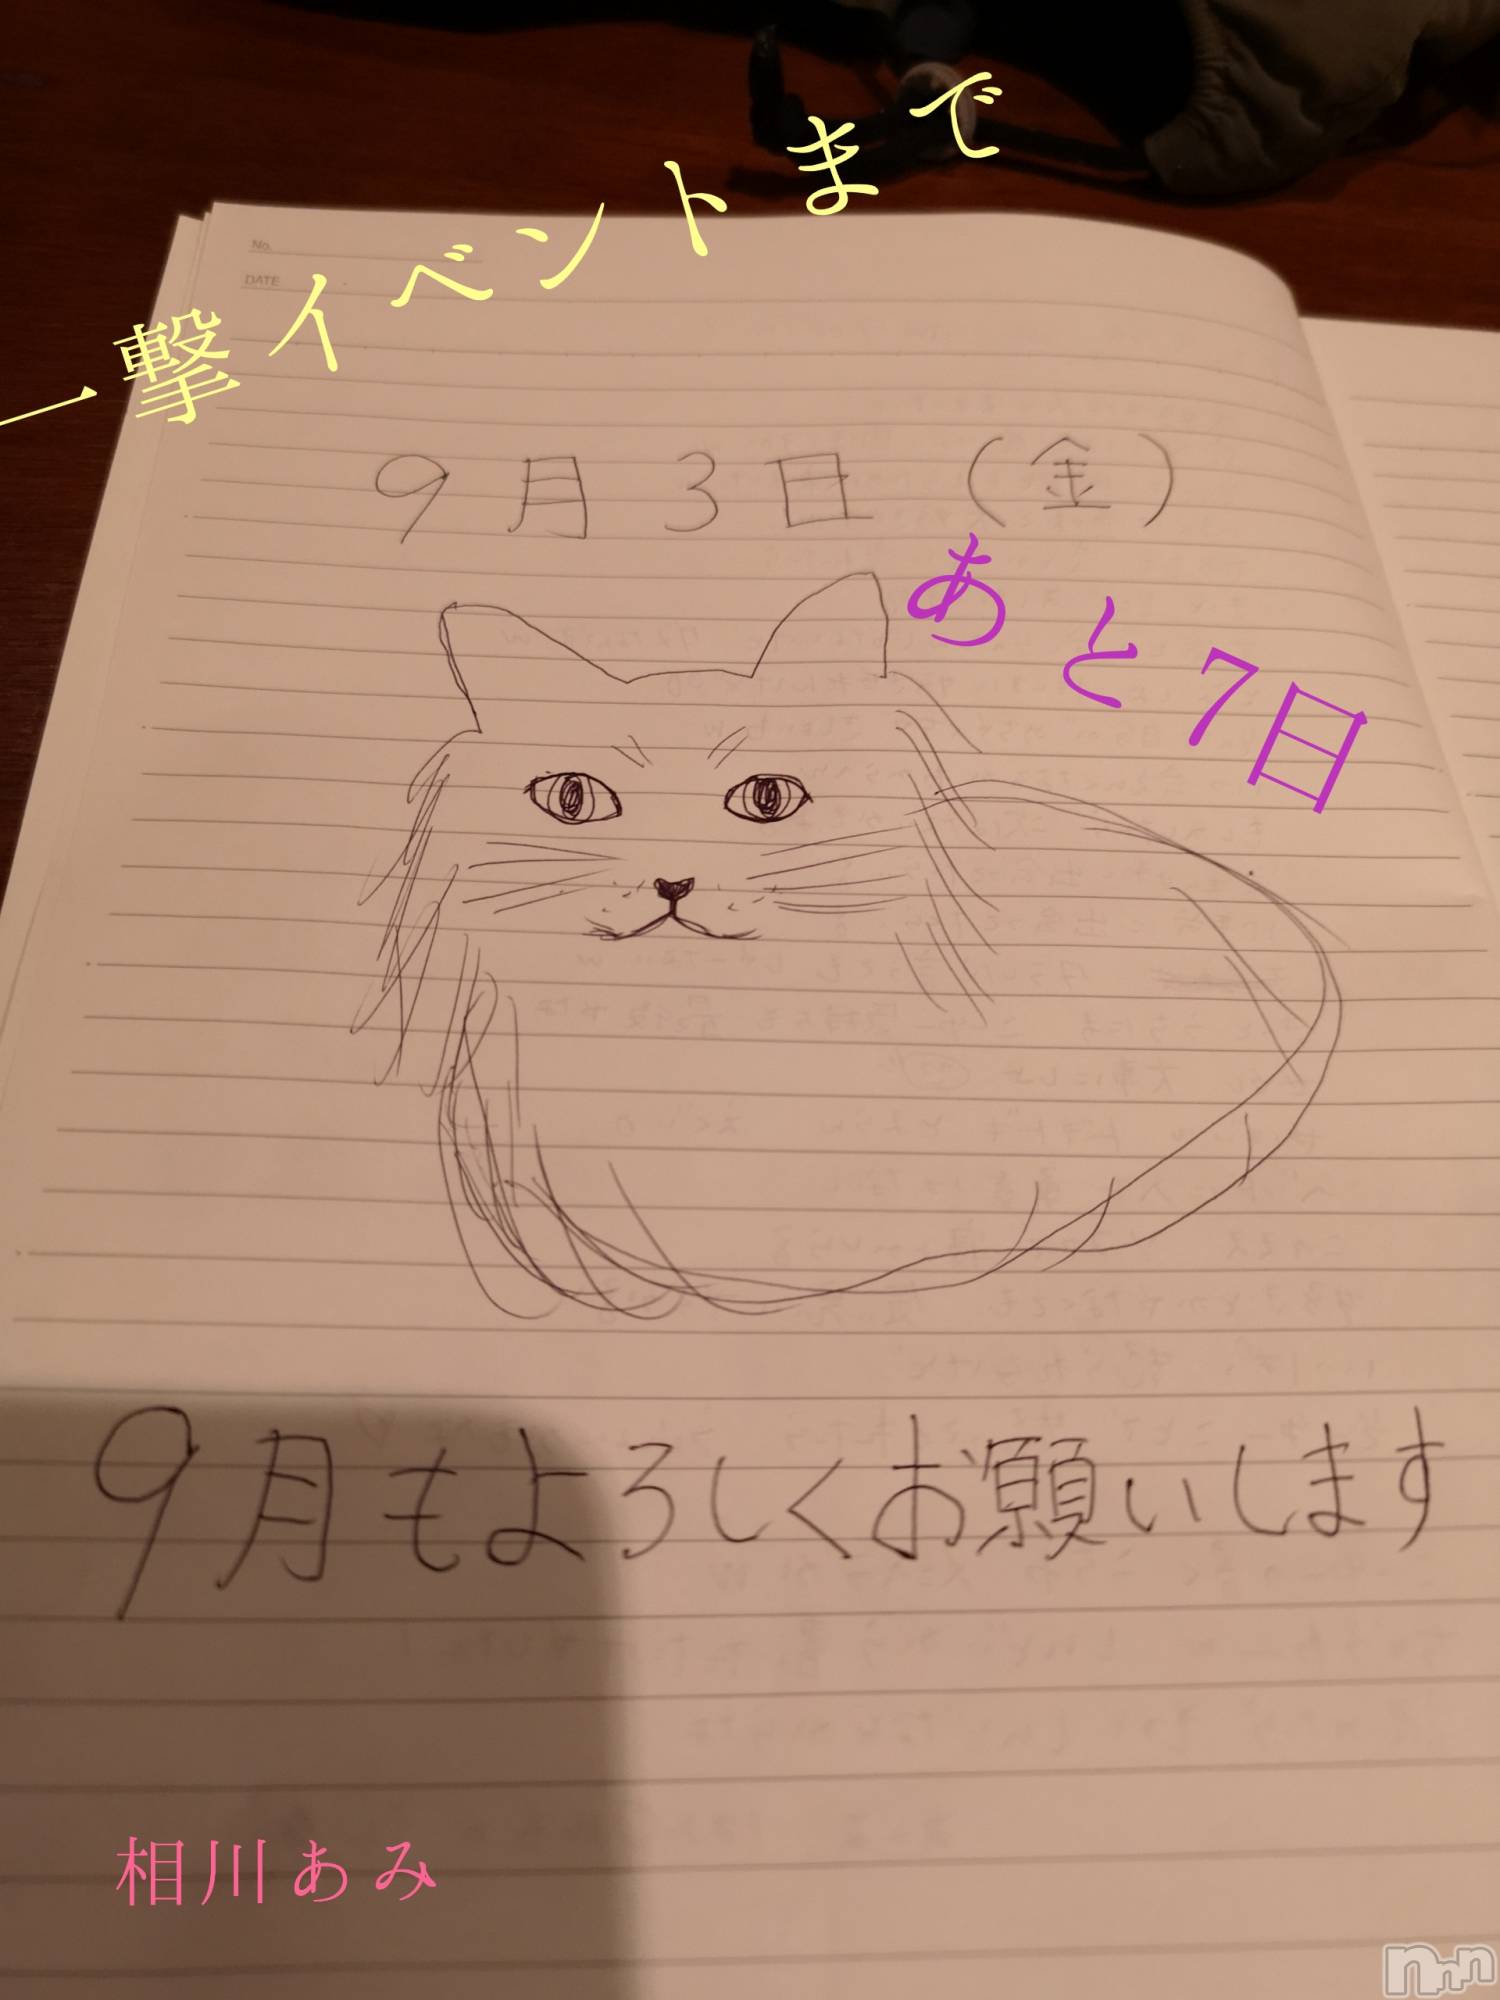 一撃イベントまで
No.
DATE
9月3日(金)
あと7日
9月もよろしくお願いします
相川あみ
nnn